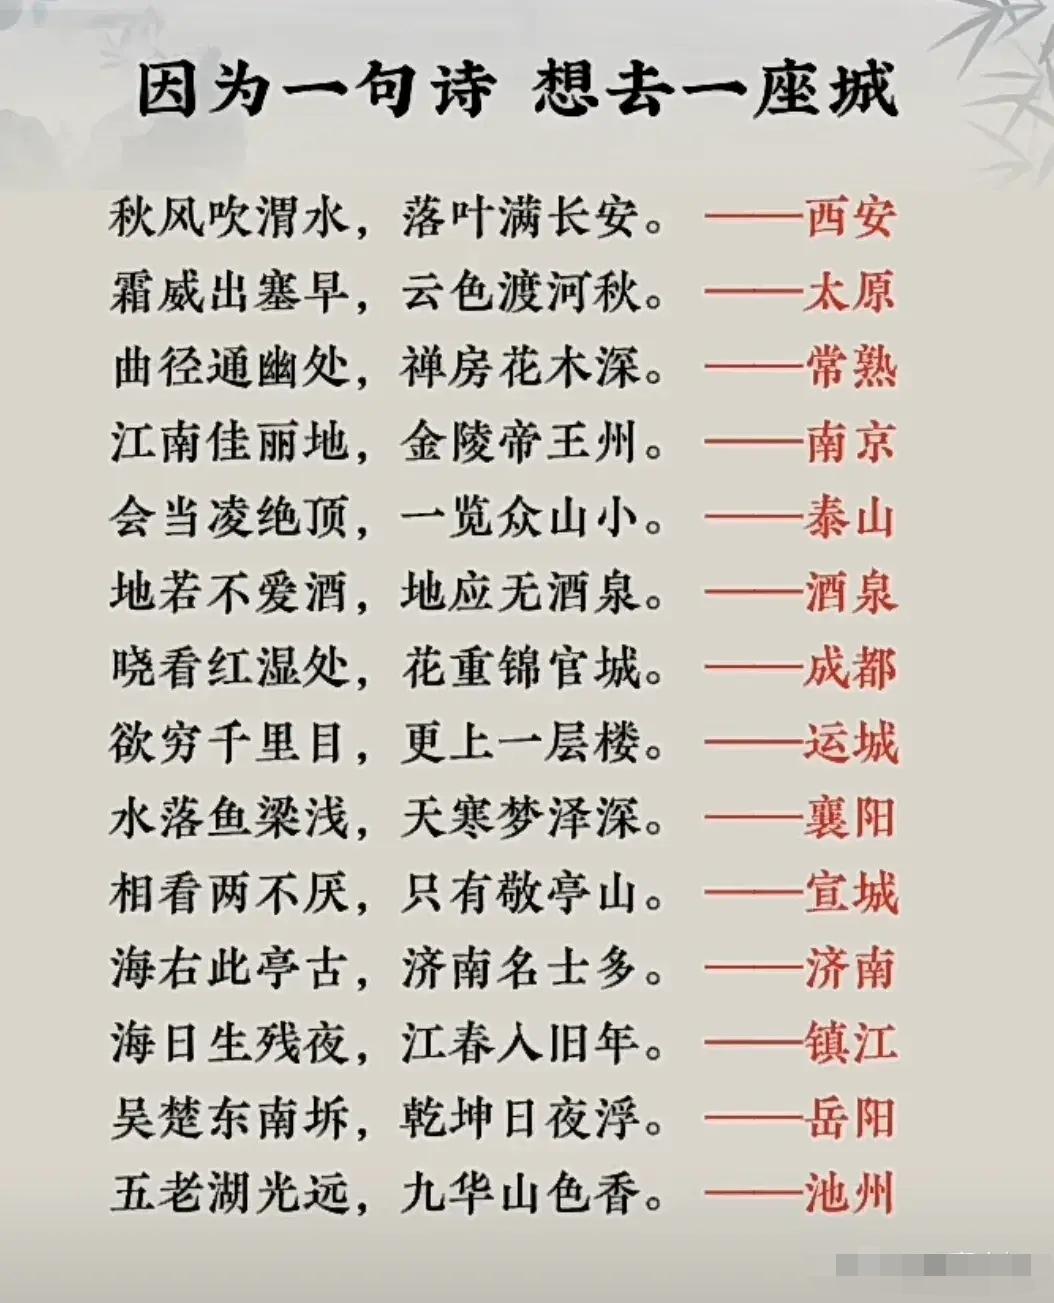 因为一句诗 想去一座城
秋风吹渭水，落叶满长安。——西安
霜威出塞早，云色渡河秋。——太原
曲径通幽处，禅房花木深。——常熟
江南佳丽地，金陵帝王州。——南京
会当凌绝顶，一览众山小。——泰山
地若不爱酒，地应无酒泉。——酒泉
晓看红湿处，花重锦官城。——成都
欲穷千里目，更上一层楼。——运城
水落鱼梁浅，天寒梦泽深。——襄阳
相看两不厌，只有敬亭山。——宣城
海右此亭古，济南名士多。——济南
海日生残夜，江春入旧年。——镇江
吴楚东南坼，乾坤日夜浮。——岳阳
五老湖光远，九华山色香。——池州